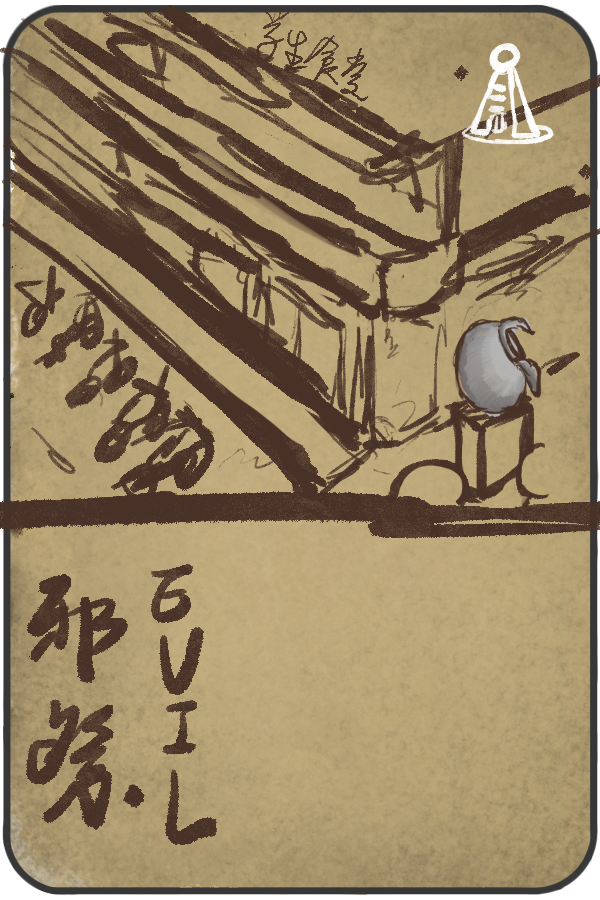 学生食堂
邪
EVIL